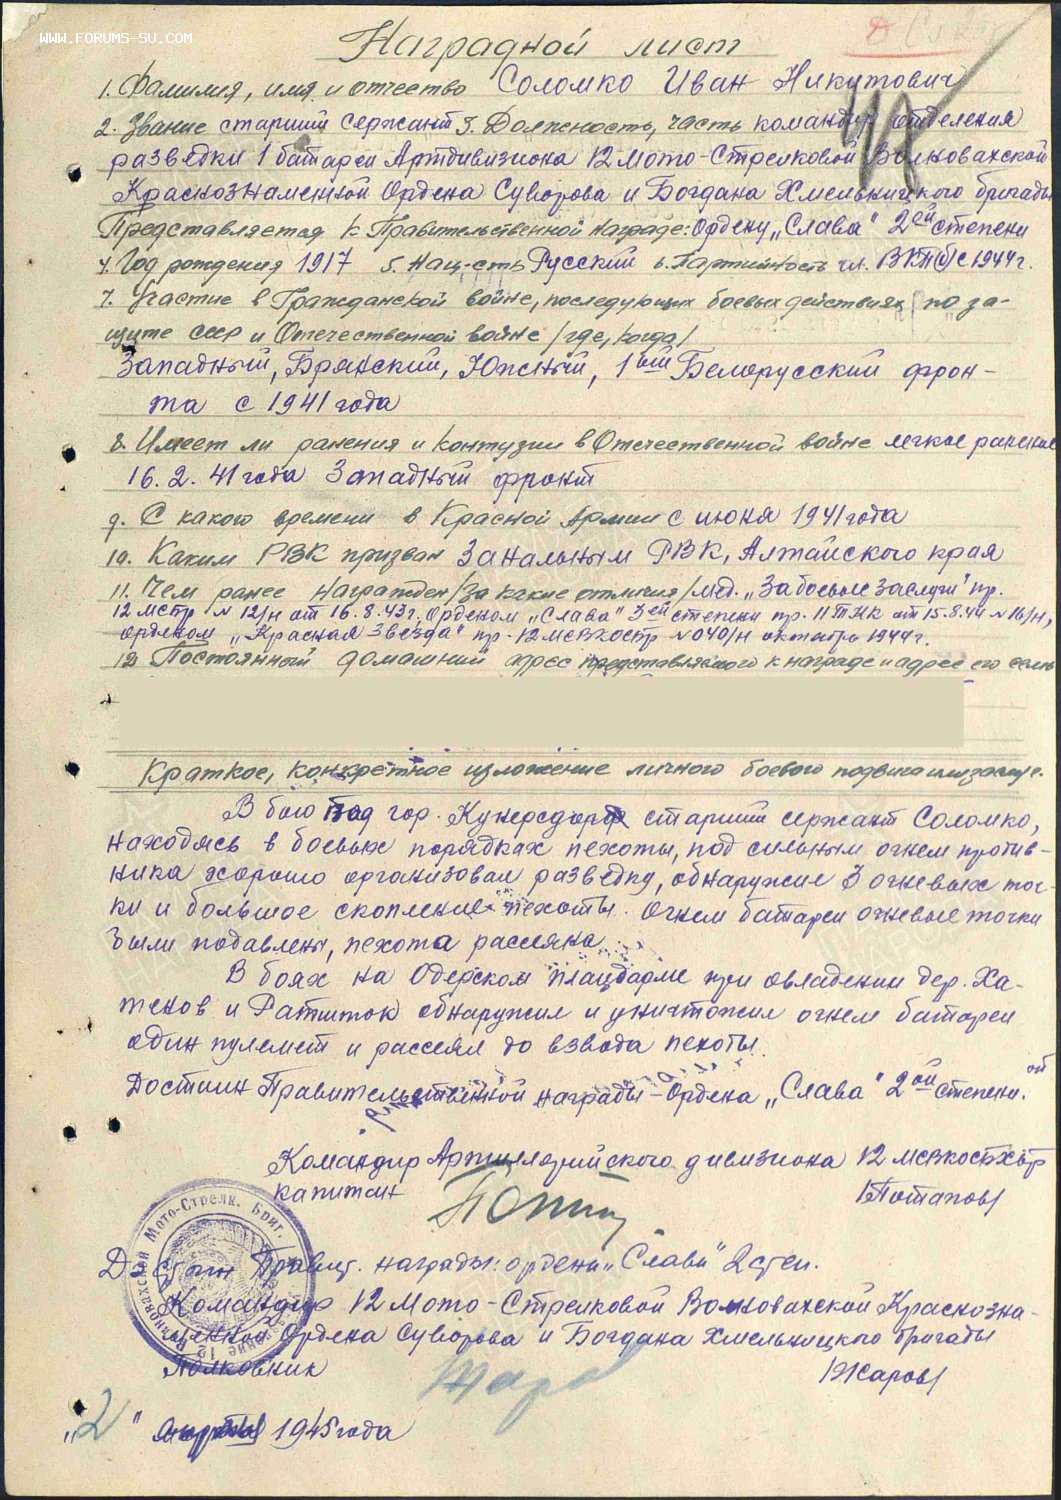 WWW.FORUMS-SU.COM
Наградной лист
1. Фамилия, имя и отчество Соломко Иван Никитович
2. Звание старший сержант 3. Должность, часть командир отделения
разведки 1 батареи Артдивизиона 12 Мото-Стрелковой Волновахской
Краснознаменной Ордена Суворова и Богдана Хмельницкого бригады
Представляется к Правительственной награде: Ордену „Слава" 2ой степени
4. Год рождения 1917 5. Нац-сть Русский 6. Партийность чл. ВКП(б) с 1944г.
7. Участие в Гражданской войне, последующих боевых действиях по за-
щите СССР и Отечественной войне /где, когда/
Западный, Брянский, Южный, 1ый Белорусский фрон-
та с 1941 года
8. Имеет ли ранения и контузии в Отечественной войне легкое ранение
16. 2. 41 года Западный фронт
9. С какого времени в Красной Армии с июня 1941 года
10. Каким РВК призван Занальным РВК, Алтайского края
11. Чем ранее награжден /за какие отличия/ мед. „За боевые заслуги" пр.
12 мстр № 12/н от 16.8.43г. Орденом „Слава" 3ей степени пр. 11 ТНК от 15.8.44 № 16/н,
орденом „Красная Звезда" пр. 12 мсвкостр № 040/н октябрь 1944г.
12 Постоянный домашний адрес представляемого к награде и адрес его семьи
Краткое, конкретное изложение личного боевого подвига или заслуг.
В бою под гор. Кунерсдорф старший сержант Соломко,
находясь в боевых порядках пехоты, под сильным огнем против-
ника хорошо организовал разведку, обнаружил 3 огневых точ-
ки и большое скопление пехоты. Огнем батареи огневые точки
были подавлены, пехота рассеяна
В боях на Одерском плацдарме при овладении дер. Ха-
тенов и Ратшток обнаружил и уничтожил огнем батареи
один пулемет и рассеял до взвода пехоты.
Достоин Правительственной награды - Ордена „Слава" 2ой степени.
Командир Артиллерийского дивизиона 12 мсвкосбхбр
капитан /Потапов/
Достоин Правит. награды: ордена „Слава" 2 степ.
Командир 12 Мото-Стрелковой Волновахской Краснозна-
менной Ордена Суворова и Богдана Хмельницкого бригады
Полковник /Жаров/
„2" 1945 года